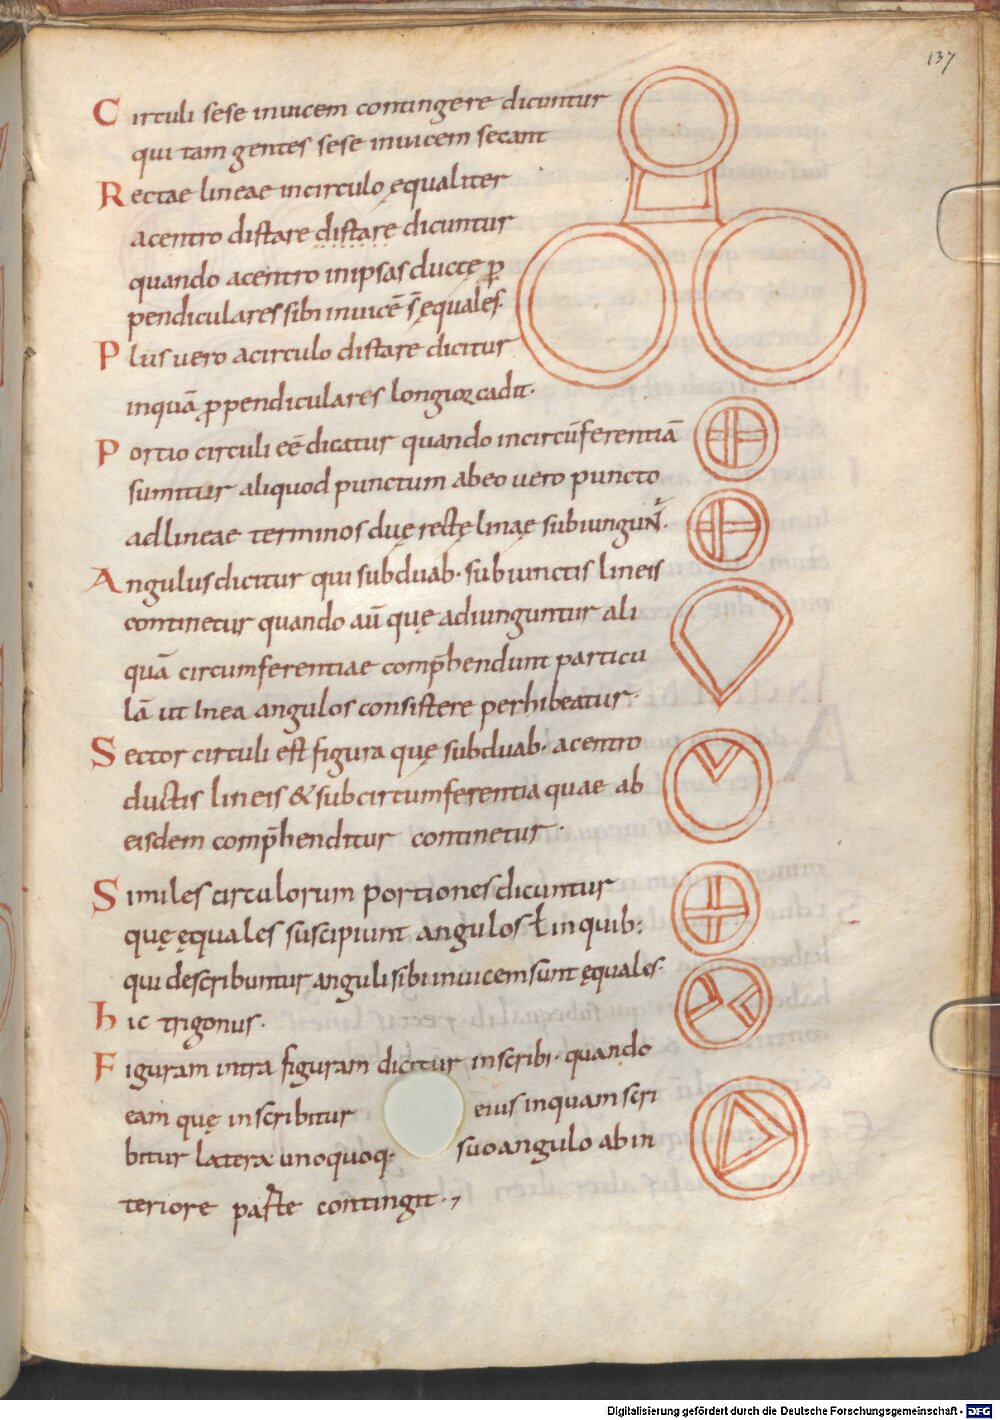 137
Circuli sese inuicem contingere dicuntur
qui tam gentes sese inuicem secant
Rectae lineae incirculo ęqualiter
acentro distare distare dicuntur
quando acentro inipsas ductę p̱
pendiculares sibi inuicē s̄ ęquales.
Plus uero acirculo distare dicitur
inquā p̱pendiculares longior cadit.
Portio circuli eē dicatur quando incircūferentiā
sumitur aliquod punctum abeo uero puncto
adlineae terminos duę rectę linaę subiungun̄.
Angulus dicitur qui subduab. subiunctis lineis
continetur quando aū quę adiunguntur ali
quā circumferentiae comp̄hendunt particu
lā ut Inea angulos consistere perhibeatur.
Sector circuli est figura quę subduab. acentro
ductis lineis & subcircumferentia quae ab
eisdem comp̄henditur continetur.
Similes circulorum portiones dicuntur
quę ęquales suscipiunt angulos ƚ inquib:
qui describuntur anguli sibi inuicem sunt ęquales.
hic trigonus.
Figuram intra figuram dicitur inscribi. quando
eam quę inscribitur eius inquam scri
bitur latera unoquoq. suo angulo abin
teriore parte contingit.,
Digitalisierung gefördert durch die Deutsche Forschungsgemeinschaft - DFG